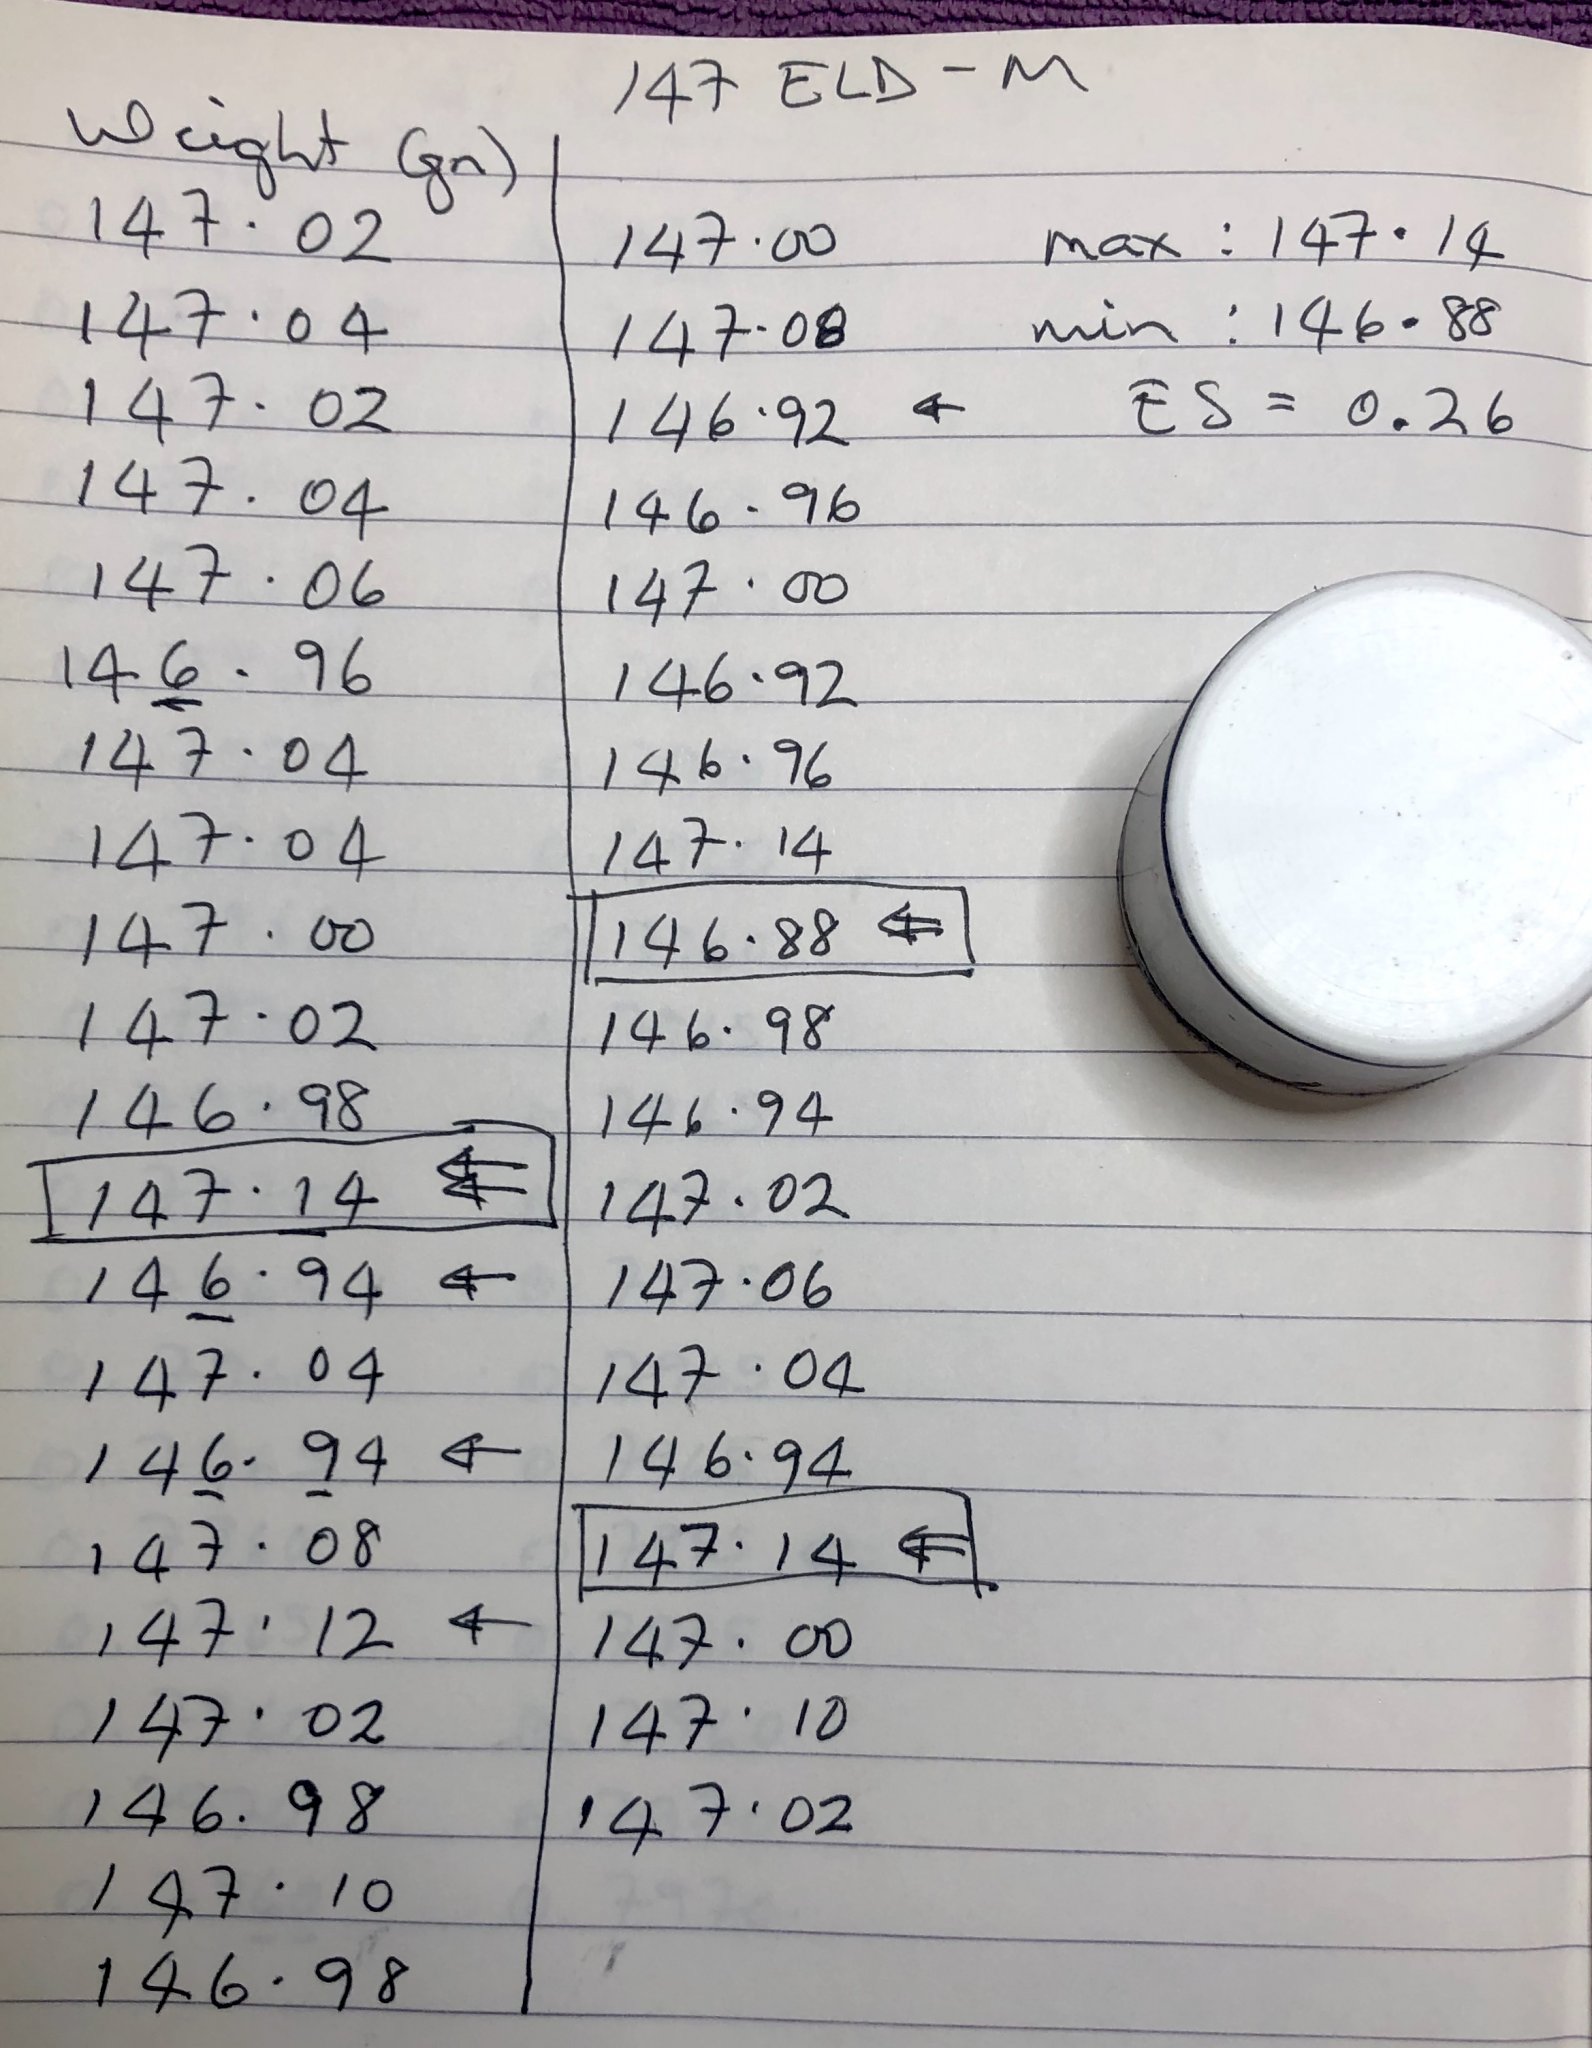 147 ELD-M
Weight (gn)
147.02
147.04
147.02
147.04
147.06
146.96
147.04
147.04
147.00
147.02
146.98
147.14
146.94
147.04
146.94
147.08
147.12
147.02
146.98
147.10
146.98
147.00
147.08
146.92
146.96
147.00
146.92
146.96
147.14
146.88
146.98
146.94
147.02
147.06
147.04
146.94
147.14
147.00
147.10
147.02
max : 147.14
min : 146.88
ES = 0.26